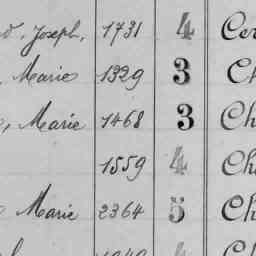 d, Joseph, 1731 4 Cer
, Marie 1329 3 Ch
, Marie 1468 3 Ch
1559 4 Cha
Marie 2364 5 Ch